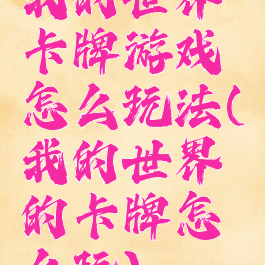 我的世界
卡牌游戏
怎么玩法(
我的世界
的卡牌怎
么玩)